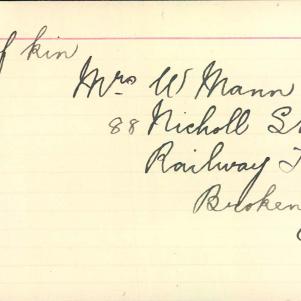 of kin
Mrs W Mann
88 Nicholl S
Railway T
Broken